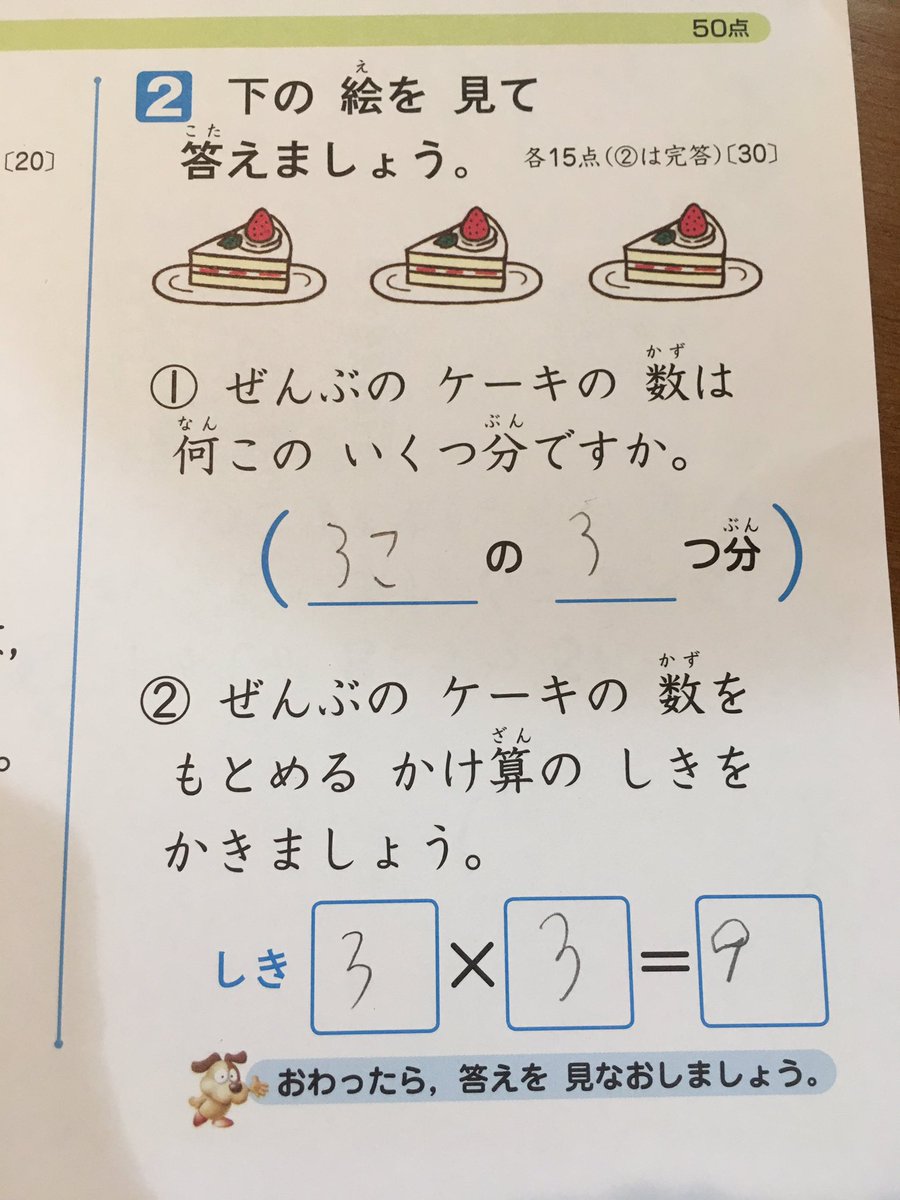 50点
〔20〕
2 下の 絵を 見て
え
答えましょう。 各15点(②は完答)〔30〕
こた
① ぜんぶの ケーキの 数は
かず
何この いくつ分ですか。
なん ぶん
( 3こ の 3 つ分 )
ぶん
② ぜんぶの ケーキの 数を
かず
もとめる かけ算の しきを
ざん
かきましょう。
しき 3 × 3 = 9
おわったら, 答えを 見なおしましょう。